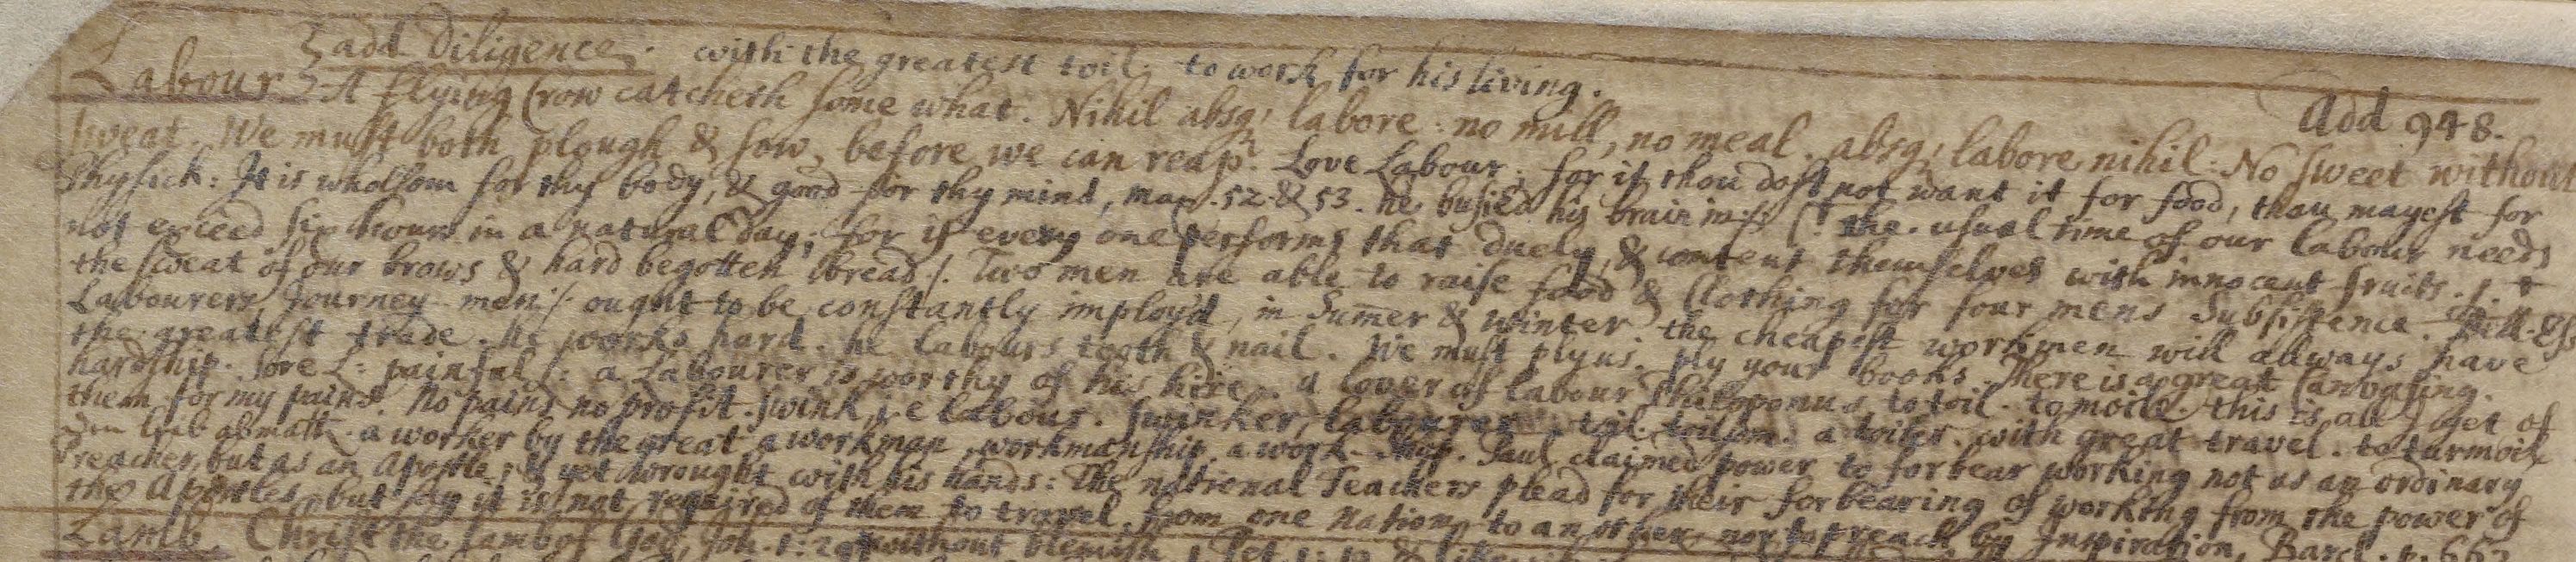 add Diligence. with the greatest toil. to work for his living.
Add 948.
Labour A flying Crow catcheth some what. Nihil absq; labore: no mill, no meal. absq; labore nihil: No sweet without
sweat. We must both plough & sow, before we can reap. Love Labour: for if thou dost not want it for food, thou mayest for
Physick: It is wholsom for thy body, & good for thy mind, 52 & 53. he busied his brain in the usual time of our labour needs
not exceed six hours in a natural day; for if every one performs that duely, & content themselves with innocent fruits.
the sweat of our brows & hard begotten bread Two men are able to raise food & Clothing for four mens Subsistence.
Labourers, Journey-men ought to be constantly imploy'd, in Summer & winter the cheapest workmen will always have
the greatest trade. he works hard. he labours tooth & nail. We must ply ply your books. There is a great Canvasing.
hardship. sore L: painful a Labourer is worthy of his hire. a lover of labour Philoponus. to toil. to moile. this is all I get of
them for my pains. No pains no profit. swink, i.e labour. swinker, labourer toil. toilsom. a toiler. with great travel. to turmoile
a worker by the great a workman, workmanship. a work-shop. Paul claimed power to forbear working not as an ordinary
Preacher, but as an Apostle; & yet wrought with his hands: The national Teachers plead for their forbearing of working from the power of
the Apostles, but say it is not required of them to travel from one Nation to an other, nor to preach by Inspiration, Barcl. p. 662
Lamb. Christ the Lamb of God, Joh. 1: 29 without blemish 1 Pet. 1: 19 &